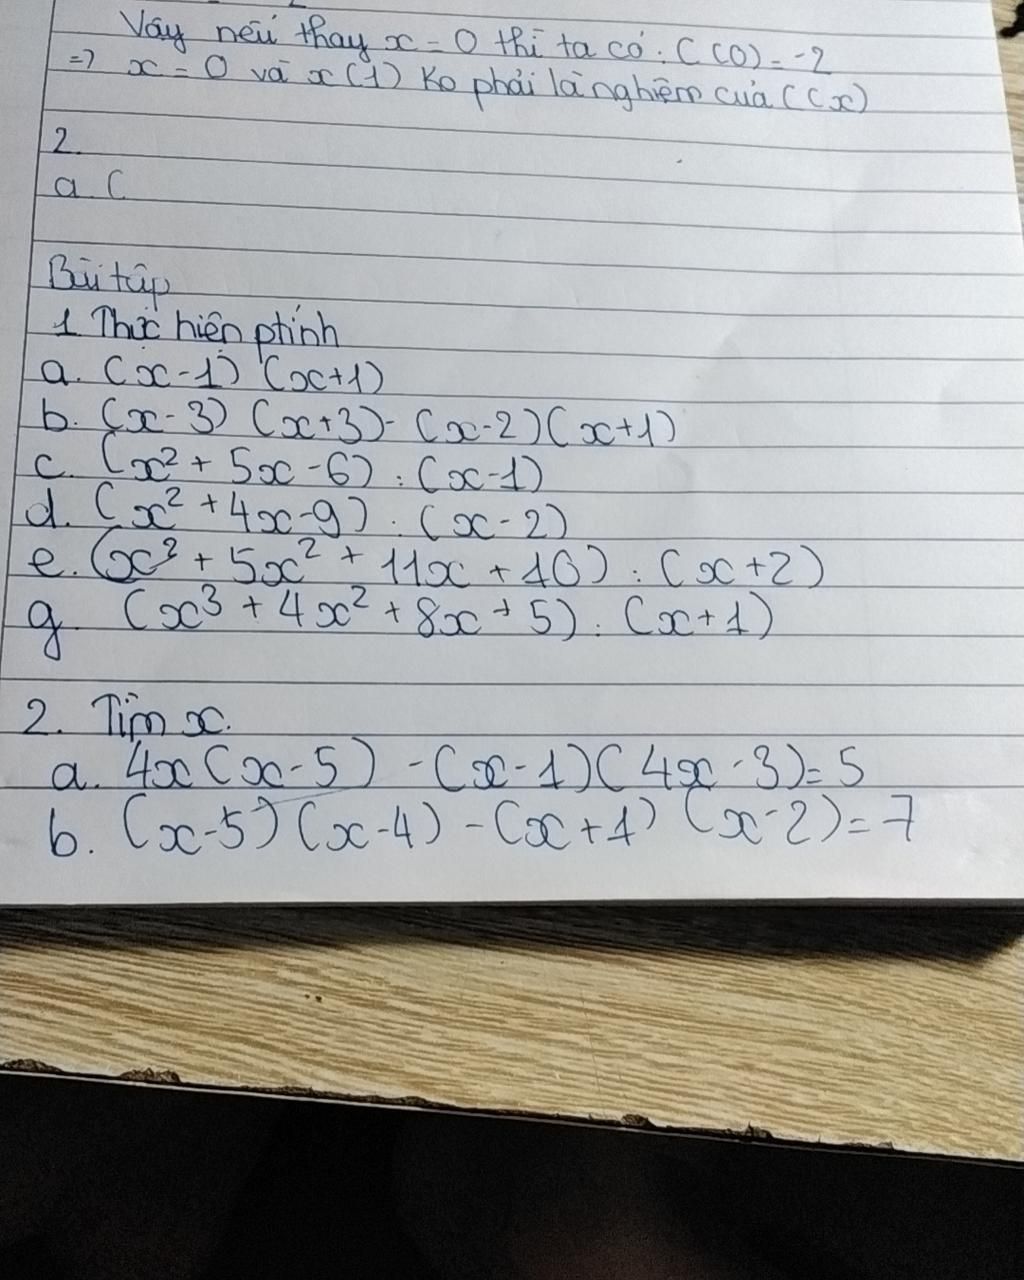 Vậy nếu thay x = 0 thì ta có: C(0) = -2
=> x = 0 và x(1) Ko phải là nghiệm của C(x)
2.
a. C
Bài tập
1 Thực hiện ptính
a. (x-1) (x+1)
b. (x-3) (x+3) - (x-2)(x+1)
c. (x² + 5x - 6) : (x-1)
d. (x² + 4x - 9) : (x-2)
e. (x³ + 5x² + 11x + 10) : (x+2)
g. (x³ + 4x² + 8x + 5) : (x+1)
2. Tìm x.
a. 4x(x-5) - (x-1)(4x-3) = 5
b. (x-5)(x-4) - (x+1) (x-2) = 7